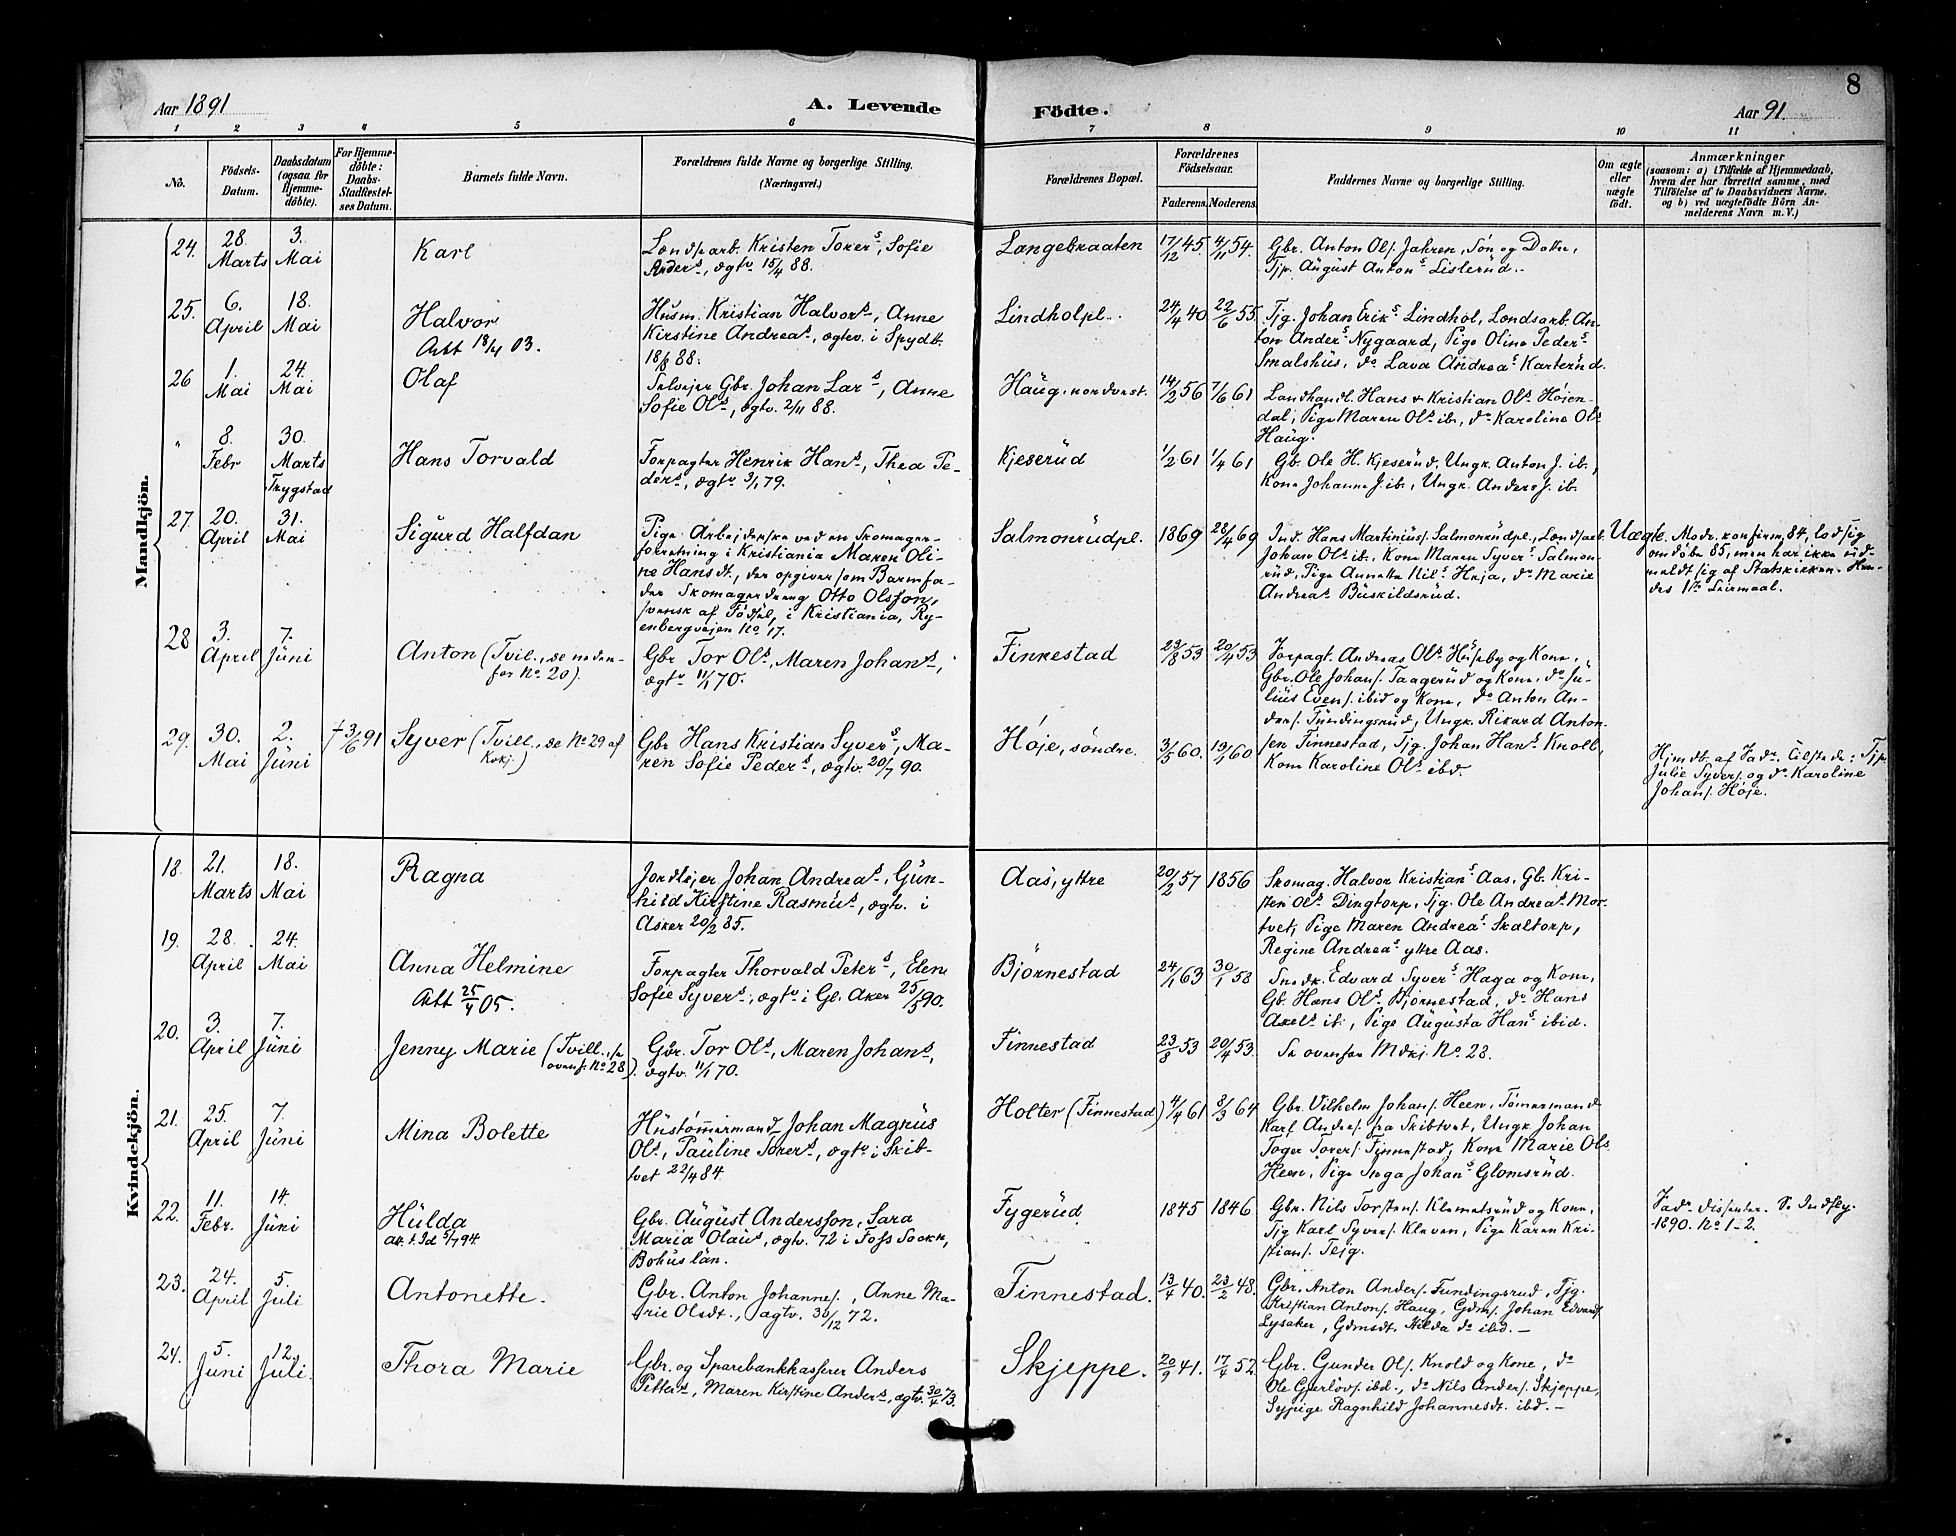 8
Aar 1891
A. Levende
Födte.
Aar 91.
1 2 3 4 5 6 7 8 9 10 11
No.
Födsels-
Datum.
Daabsdatum
(ogsaa for
Hjemme-
döbte).
For Hjemme-
döbte:
Daabs-
Stadfestel-
ses Datum.
Barnets fulde Navn.
Forældrenes fulde Navne og borgerlige Stilling.
(Næringsvei.)
Forældrenes Bopæl.
Forældrenes
Födselsaar.
Faderens. Moderens.
Faddernes Navne og borgerlige Stilling.
Om ægte
eller
uægte
födt.
Anmærkninger
(saasom: a) i Tilfælde af Hjemmedaab,
hvem der har forrettet samme, med
Tilföielse af to Daabsvidners Navne.
og b) ved uægtefödte Börn An-
melderens Navn m. V.)
Mandkjön.
24. 28. Marts 3. Mai
Karl
Landsarb. Kristen Torers, Sofie
Anders, ægtv. 15/4 88.
Langebraaten
17/12 45. 4/11 54.
Gbr. Anton Ols. Jahren, Søn og Datter,
Tjp. August Antons Lislerud.
25. 6. April 18. Mai
Halvor
Att 18/4 03.
Husm. Kristian Halvors, Anne
Kirstine Andreas, ægtv. i Spydb.
18/8 88.
Lindholpl.
24/4 40 22/6 55.
Tjg. Johan Eriks Lindhol, Landsarb. An-
ton Anders Nygaard, Pige Oline Peders
Smalshus, do Lava Andreas Karterud.
26 1. Mai 24. Mai
Olaf
Selvejer Gbr. Johan Lars, Anne
Sofie Ols, ægtv. 2/11 88.
Haug, nordvest.
14/2 56 7/6 61
Landhandl. Hans & Kristian Ols Højen-
dal, Pige Maren Ols ib., do Karoline Ols
Haug.
" 8. Febr 30. Marts
Trygstad
Hans Torvald
Forpagter Henrik Hans, Thea Pe-
ders, ægtv 3/1 79.
Kjeserud
1/2 61 1/4 61
Gb. Ole H. Kjeserud, Ungk. Anton J. ib.,
Kone Johanne J. ib., Ungk. Anders J. ib.
27. 20. April 31. Mai
Sigurd Halfdan
Pige Arbejderske ved en Skomager-
forretning i Kristiania Maren Oli-
ne Hansdt., der opgiver som Barnefa-
der Skomagerdreng Otto Olsson,
svensk af Fødsel, i Kristiania, Ry-
enbergvejen No 17.
Salmonrudpl.
1869 28/4 69
Ind. Hans Martinius. Salmonrudpl., Landsarb.
Johan Ols ib., Kone Maren Syvers Salmon-
rud, Pige Annette Nils Heja, do Marie
Andreas Buskildsrud.
Uægte.
Modr. konfirm 84, lod sig
omdøbe 85, men har ikke ud-
meldt sig af Statskirken. Hen-
des 1te Leiermaal.
28 3. April 7. Juni
Anton (Tvil., se neden-
for No 20).
Gbr Tor Ols, Maren Johans,
ægtv 11/1 70.
Finnestad
23/8 53 20/4 53
Forpagt. Andreas Ols Huseby og Kone,
Gbr. Ole Johans. Taagerud og Kone, do Ju-
lius Evens. ibid og Kone, do Anton An-
ders. Fundingsrud, Ungk. Rikard Anton-
29. 30. Mai 2. Juni † 3/6 91
Syver (Tvill., se No 29 af
Kvkj.)
Gbr Hans Kristian Syvers, Ma-
ren Sofie Peders, ægtv. 20/7 90.
Høje, søndre.
3/5 60. 19/1 60
sen Finnestad, Tjg. Johan Hans Knoll,
Kone Karoline Ols ibd.
Hjmdb. af Fadr. Tilstede: Tjp
Julie Syvers. og do Karoline
Johans. Høje.
Kvindekjön.
18. 21. Marts 18. Mai
Ragna
Jordlejer Johan Andreas, Gun-
hild Kirstine Rasmus, ægtv. i
Asker 20/2 85.
Aas, yttre
20/2 57 1856
Skomag. Halvor Kristians Aas, Gb. Kri-
sten Ols Dingtorp, Tjg. Ole Andreas Mor-
tvet, Pige Maren Andreas Skaltorp,
Regine Andreas yttre Aas.
19. 28. April 24. Mai
Anna Helmine
Att 25/4 05.
Forpagter Thorvald Peters, Elen
Sofie Syvers, ægtv i Gl. Aker 25/5 90.
Bjørnestad
24/1 63 30/1 58
Snedk. Edvard Syvers Haga og Kone,
Gb. Hans Ols Bjørnestad, do Hans
Axels ib., Pige Augusta Hans ibid.
20. 3. April 7. Juni
Jenny Marie (Tvill., se
ovenf. No 28).
Gbr. Tor Ols, Maren Johans,
ægtv. 11/1 70.
Finnestad
23/8 53 20/4 53.
Se ovenfor Mdkj. No 28.
21. 25. April 7. Juni
Mina Bolette
Hustømmermand Johan Magnus
Ols, Pauline Torers, ægtv i Skib-
tvet 22/4 84.
Holter (Finnestad)
4/4 61 8/3 64
Gbr. Vilhelm Johans. Heen, Tømermand
Karl Anders. fra Skibtvet, Ungk Johan
Toger Torers. Finnestad, Kone Marie Ols
Heen, Pige Inga Johans Glomsrud.
22. 11. Febr. 14. Juni
Hulda
Gbr. August Andersson, Sara
Maria Olaus, ægtv. 72 i Foss Sockn,
Bohuslän.
Fygerud
1845 1846
Gbr. Nils Torstens. Klemetsrud og Kone,
Tjg Karl Syvers. Kleven, Pige Karen Kri-
stians. Tejg.
Fadr. dissenter. Se Indfly.
1890. No 1-2.
23. 24. April 5. Juli
Antonette.
Gbr. Anton Johannes., Anne Ma-
rie Olsdt., ægtv. 30/12 72.
Finnestad.
13/4 40. 23/2 48.
Gbr. Anton Anders. Fundingsrud, Tjg.
Kristian Antons. Haug, Gdms. Johan Edvards.
Lysaker, Gdmsdt. Hilda do ibd. —
24. 5. Juni 12. Juli.
Thora Marie
Gbr. og Sparebankkasserer Anders
Petters, Maren Kirstine Anders, ægtv. 30/4 73.
Skjeppe.
20/9 41. 17/4 52.
Gbr. Gunder Ols. Knold og Kone, do
Ole Gjerløvs. ibd., do Nils Anders. Skjeppe,
Sypige Ragnhild Johannesdt. ibd. —